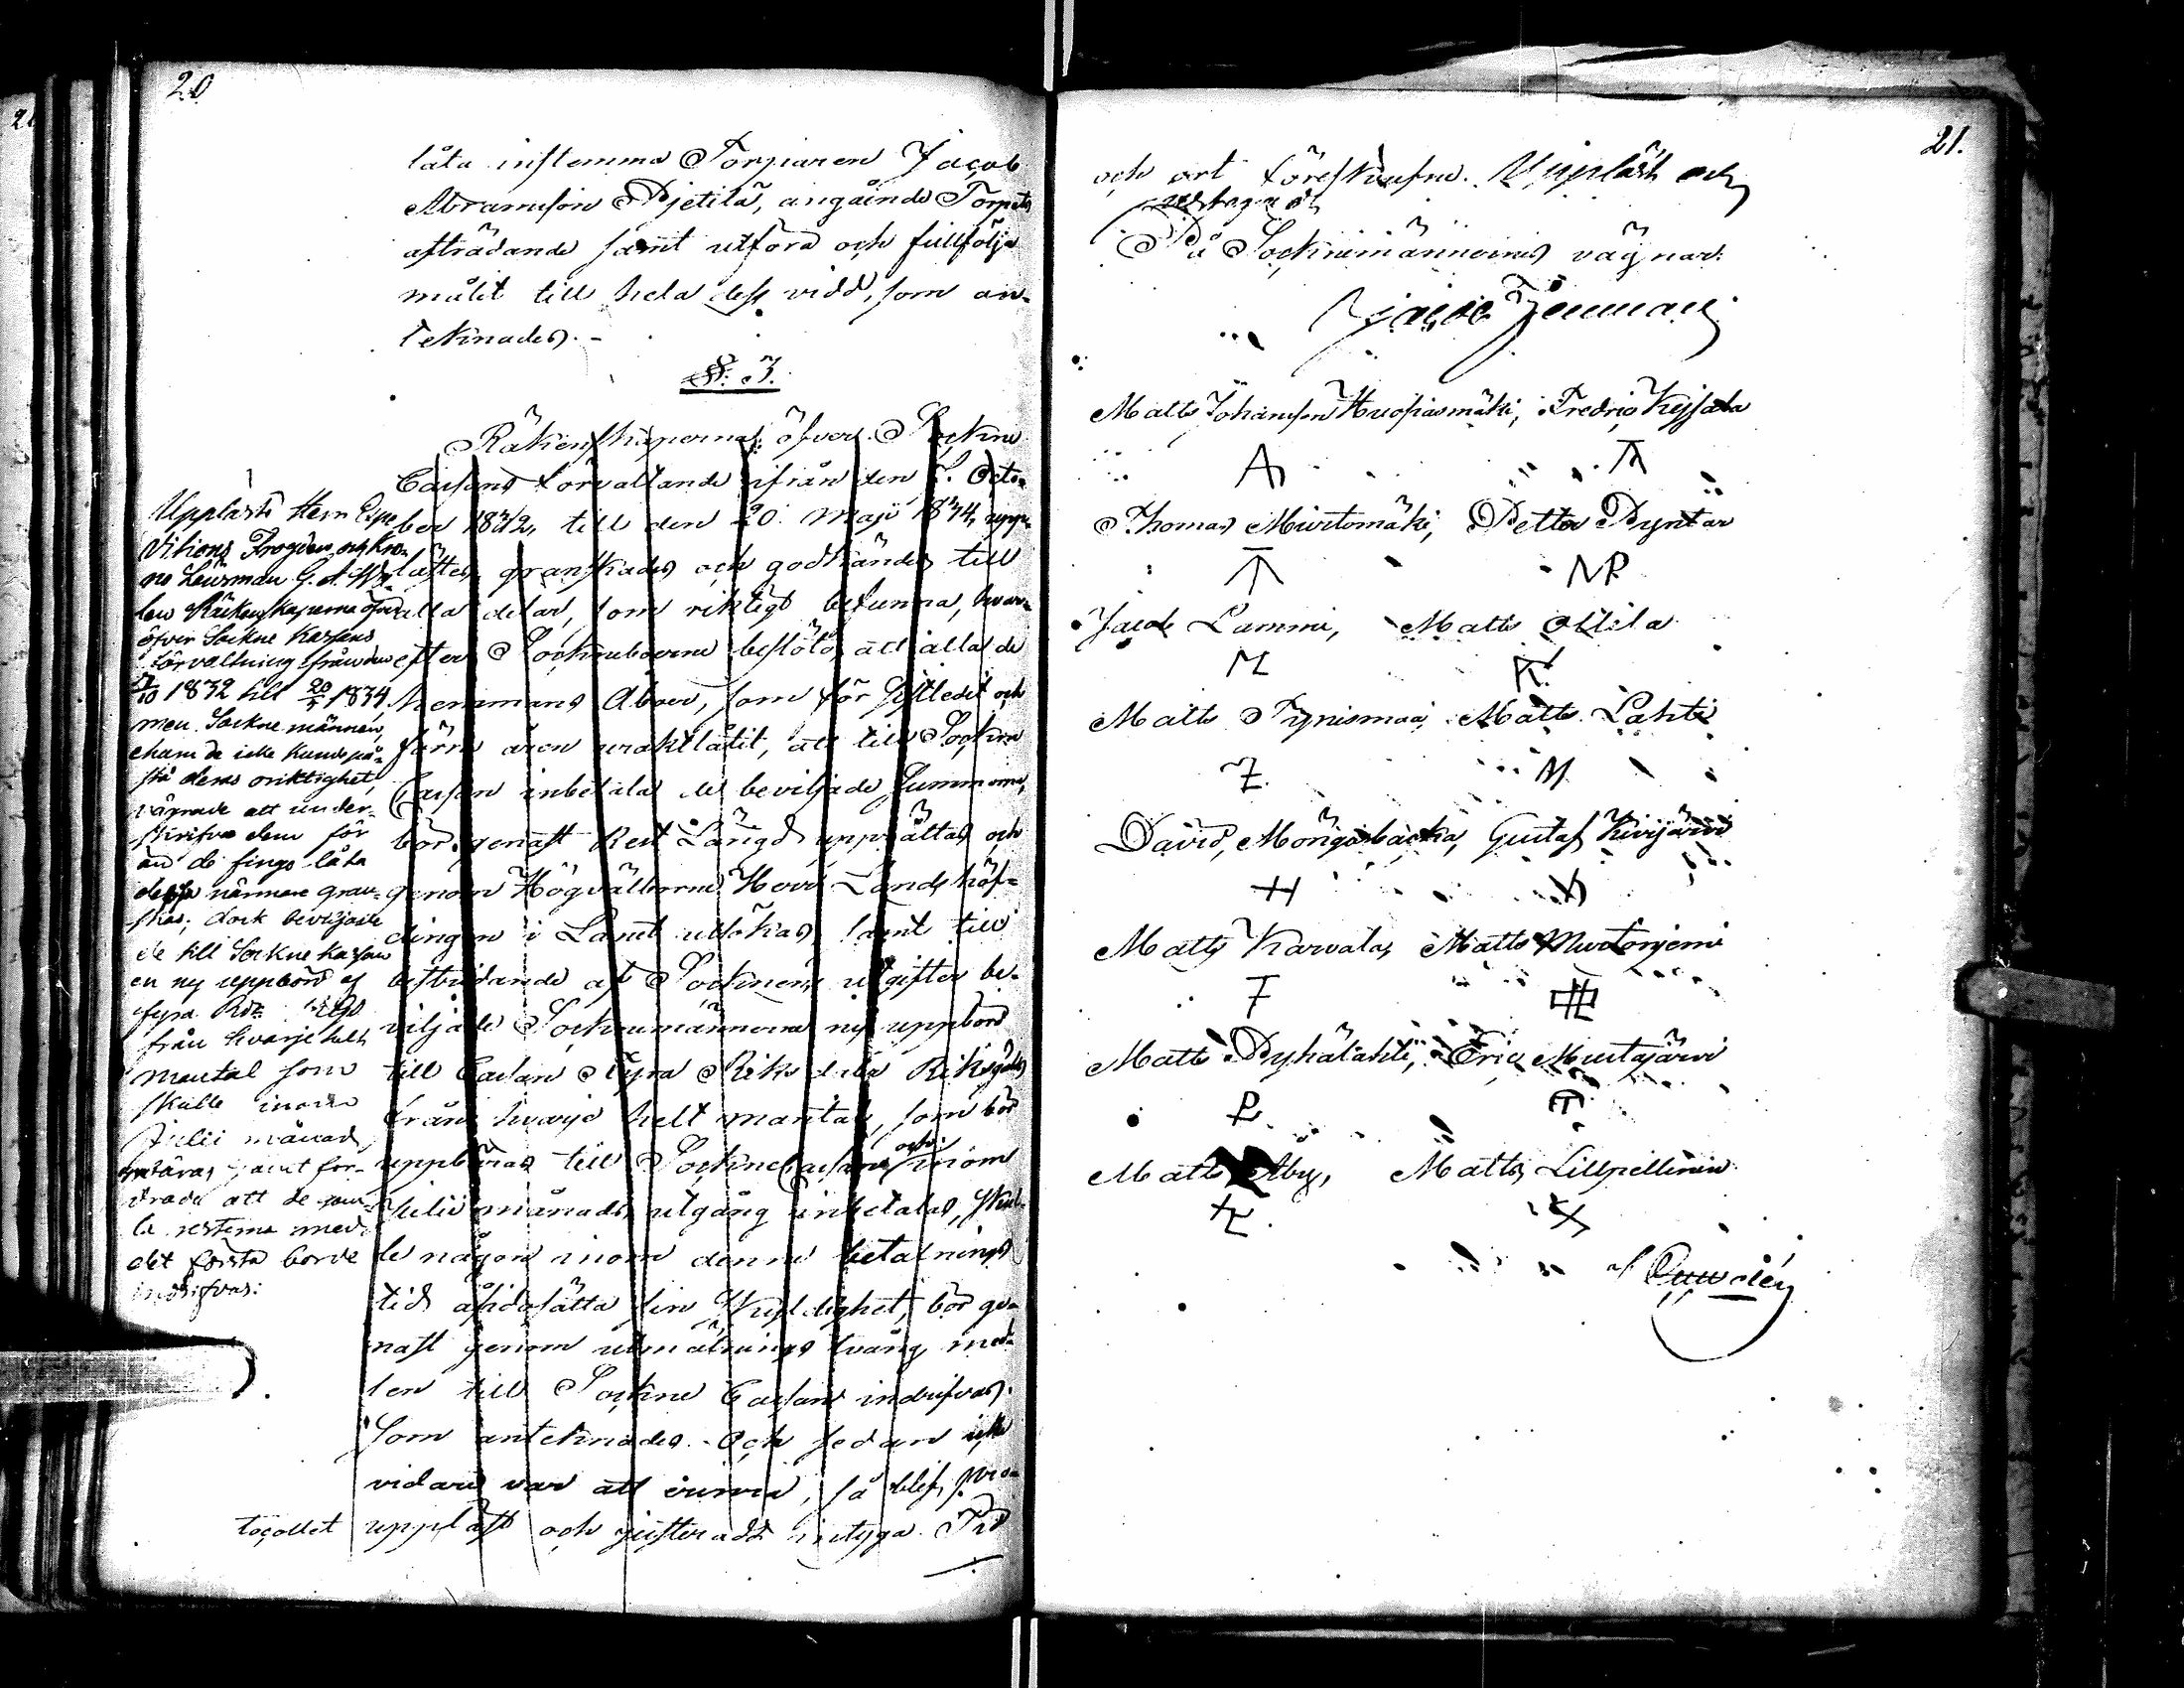 20
låta instemma Torparen Jacob
Abramsson Pjetilä, angående Torpets
afträdande samt utföra och fullfölja
målet till hela dess vidd, som an-
teknades. -
§. 3.
Räkenskaperna öfver Sockne
Cassans förvaltande ifrån den 7. Octo-
ber 1832, till den 20 Maji 1834, upp-
lästes, granskades och godkändes till
alla delar, som riktigt befunna, hvar-
efter Sockneboerne beslöto, att alla de
hemmans Åboer, som för sistledit och
förra åren uraktlåtit, att till Sockne
Cassan inbetala de beviljade Summorne,
bör genast Rest Längd upprättas och
genom Högvälborne Herr Landshöf-
dingen i Länet utsökas, samt till
bestridande af Socknens utgifter be-
viljade Socknemännerne ny uppbörd
till Cassan Fyra Riksdaler Riksgälds
från hvarje helt mantal, som bör
uppbäras till Sockne Cassan och inom
Julii månads utgång inbetalas, skul-
le någon inom denne betalnings
tid åsidosätta sin skyldighet, bör ge-
nast genom utmätnings tvång med-
len till Sockne Cassan indrifvas.
Som anteknades. Och sedan icke
vidare var att , så blef pro-
tocollet uppläst och justeradt intyga Tid
Upplästs Herr Expe
ditions Fogden och Kro-
no Länsman G. A.
Räkenskaperna
öfver Sockne Kassans
förvaltning från den
7/10 1832 till 20/5 1834
men Sockne männen,
ehuru de icke kunde på-
stå deras oriktighet,
vägrade att under-
skrifva dem för
än de fingo låta
dessa närmare gran-
skas; dock beviljade
de till Sockne kassan
en ny uppbörd af
fyra Rdr Rgs
från hvarje helt
mantal som
skulle inom
Julii månad
samt for-
drade att de
resterna med
det första borde
indrifvas:
21.
och ort föreskrefne. Uppläst och
vedtaget
På Sockne männernes vägnar:
Matts Johansson Huopiasmäki, Fredric Kessala
Thomas Murtomäki, Petter Pyntar
Jacob Lammi, Matts Ollila
Matts Tynismaa, Matts Lahti
David Mörgåsbacka, Gustaf Kivijärvi
Matts Karvala, Matts Murtoniemi
Matts Pyhälahti, Eric Mustajärvi
Matts Åby, Matts Lillpellinen